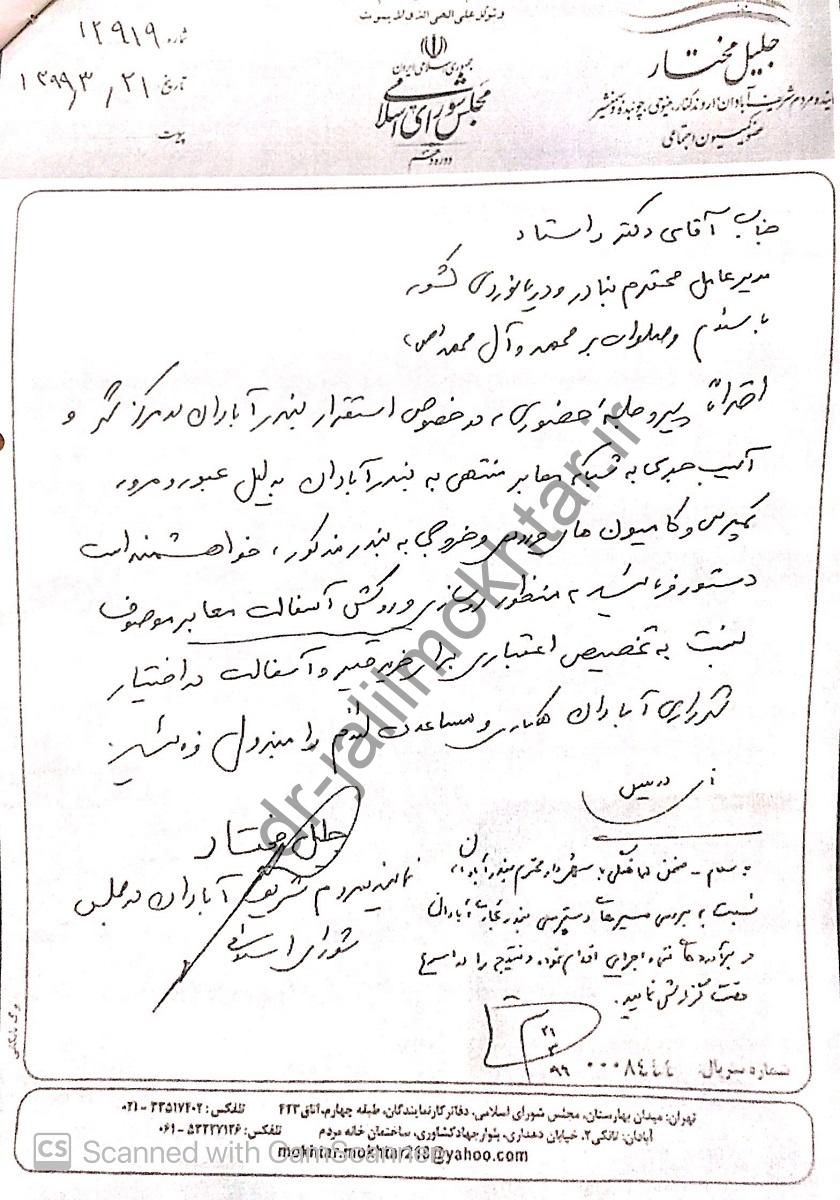 و توکل علی الحی الذی لا یموت
جلیل مختار
نماینده مردم شریف آبادان، اروندکنار، مینوشهر، چوئبده و خسروآباد
عضو کمیسیون اجتماعی
جمهوری اسلامی ایران
مجلس شورای اسلامی
دوره
شماره ۱۲۹۱۹
تاریخ ۱۳۹۹/۳/۲۱
پیوست
جناب آقای دکتر راستاد
مدیرعامل محترم بنادر و دریانوردی کشور
با سلام و صلوات بر محمد و آل محمد (ص)،
احتراماً پیرو جلسه حضوری، در خصوص استقرار بندر آبادان در مرکز شهر و
آسیب جدی به شبکه معابر منتهی به بندر آبادان به دلیل عبور و مرور
کمپرسی و کامیون های ورودی و خروجی به بندر مذکور، خواهشمند است
دستور فرمائید به منظور بهسازی و روکش آسفالت معابر موصوف
نسبت به تخصیص اعتباری برای خرید قیر و آسفالت در اختیار
شهرداری آبادان همکاری و مساعدت لازم را مبذول فرمائید
جلیل مختار
نماینده مردم شریف آبادان در مجلس
شورای اسلامی
با سلام - ضمن هماهنگی با شهردار محترم بندر آبادان
نسبت به بررسی مسیرهای دسترسی بندر تجاری آبادان
و برآورد اجرایی اقدام نموده و نتیجه را در اسرع
وقت گزارش نمایید.
۲۱
۳
۹۹
شماره سریال: ۰۰۰۸۴۴۴
تهران: میدان بهارستان، مجلس شورای اسلامی، دفاتر کار نمایندگان، طبقه چهارم، اتاق ۴۲۳ تلفکس: ۳۳۵۱۷۴۰۲ - ۰۲۱
آبادان: تانکی۲، خیابان دهداری، بلوار جهاد کشاورزی، ساختمان خانه مردم تلفکس: ۵۳۲۲۷۱۲۶ - ۰۶۱
mokhtar.mokhtar248@yahoo.com
dr-jalilmokhtar.ir
CS Scanned with CamScanner